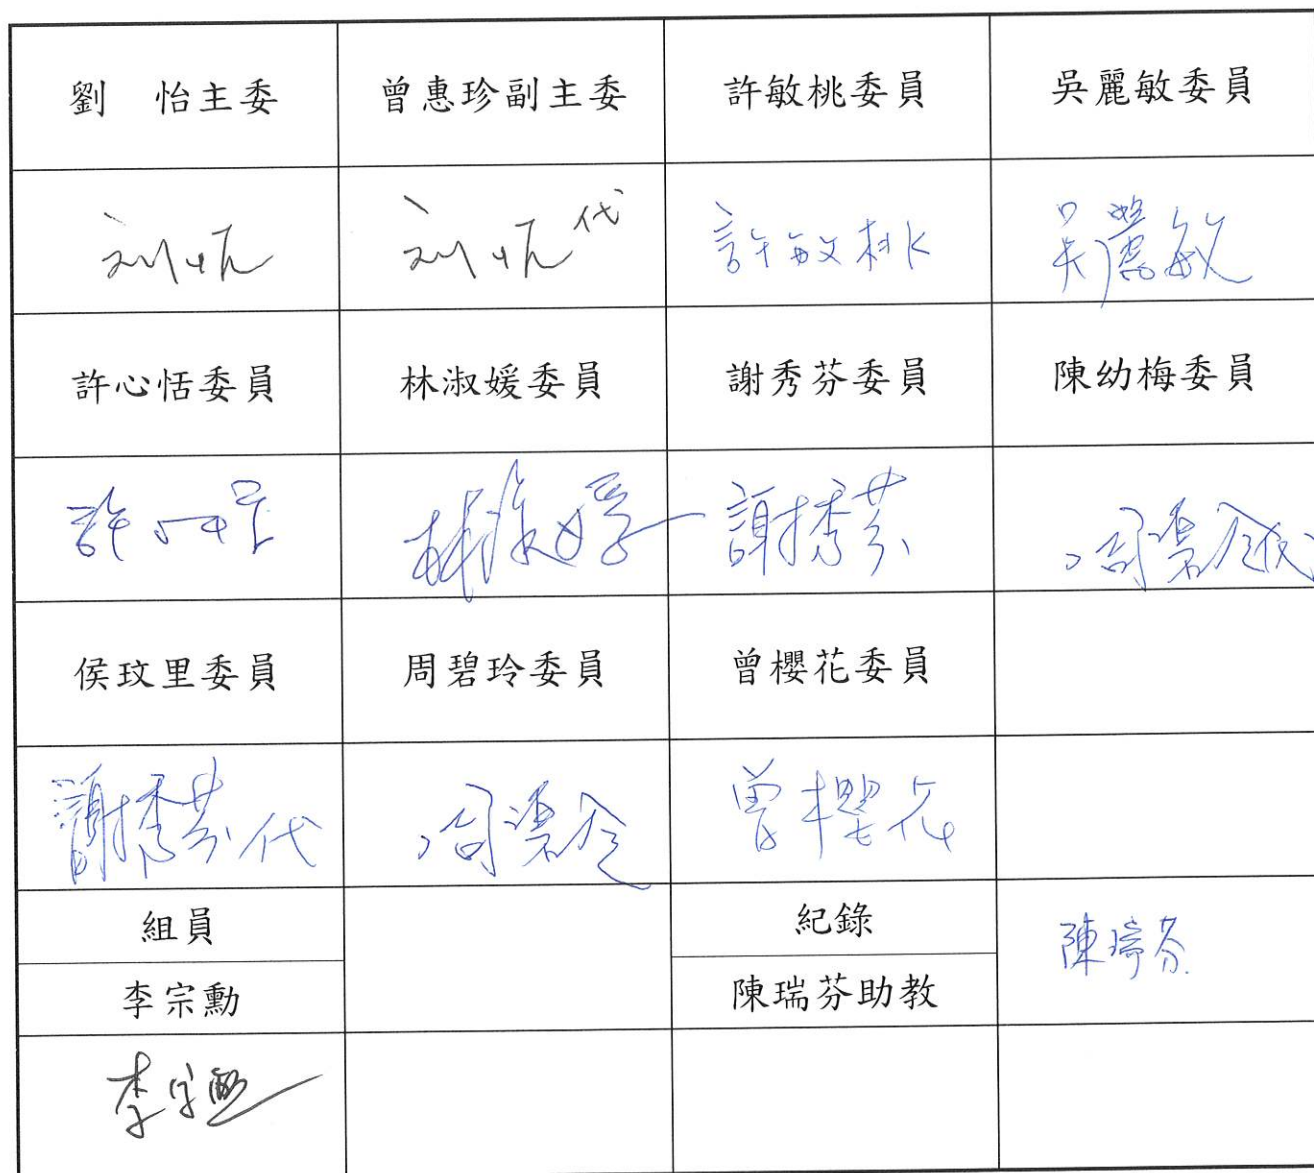 劉　怡主委
曾惠珍副主委
許敏桃委員
吳麗敏委員
刘怡
刘怡代
許敏桃
吳麗敏
許心恬委員
林淑媛委員
謝秀芬委員
陳幼梅委員
許心恬
林淑媛
謝秀芬
周碧玲代
侯玟里委員
周碧玲委員
曾櫻花委員
謝秀芬代
周碧玲
曾櫻花
組員
紀錄
陳瑞芬
李宗勳
陳瑞芬助教
李宗勳